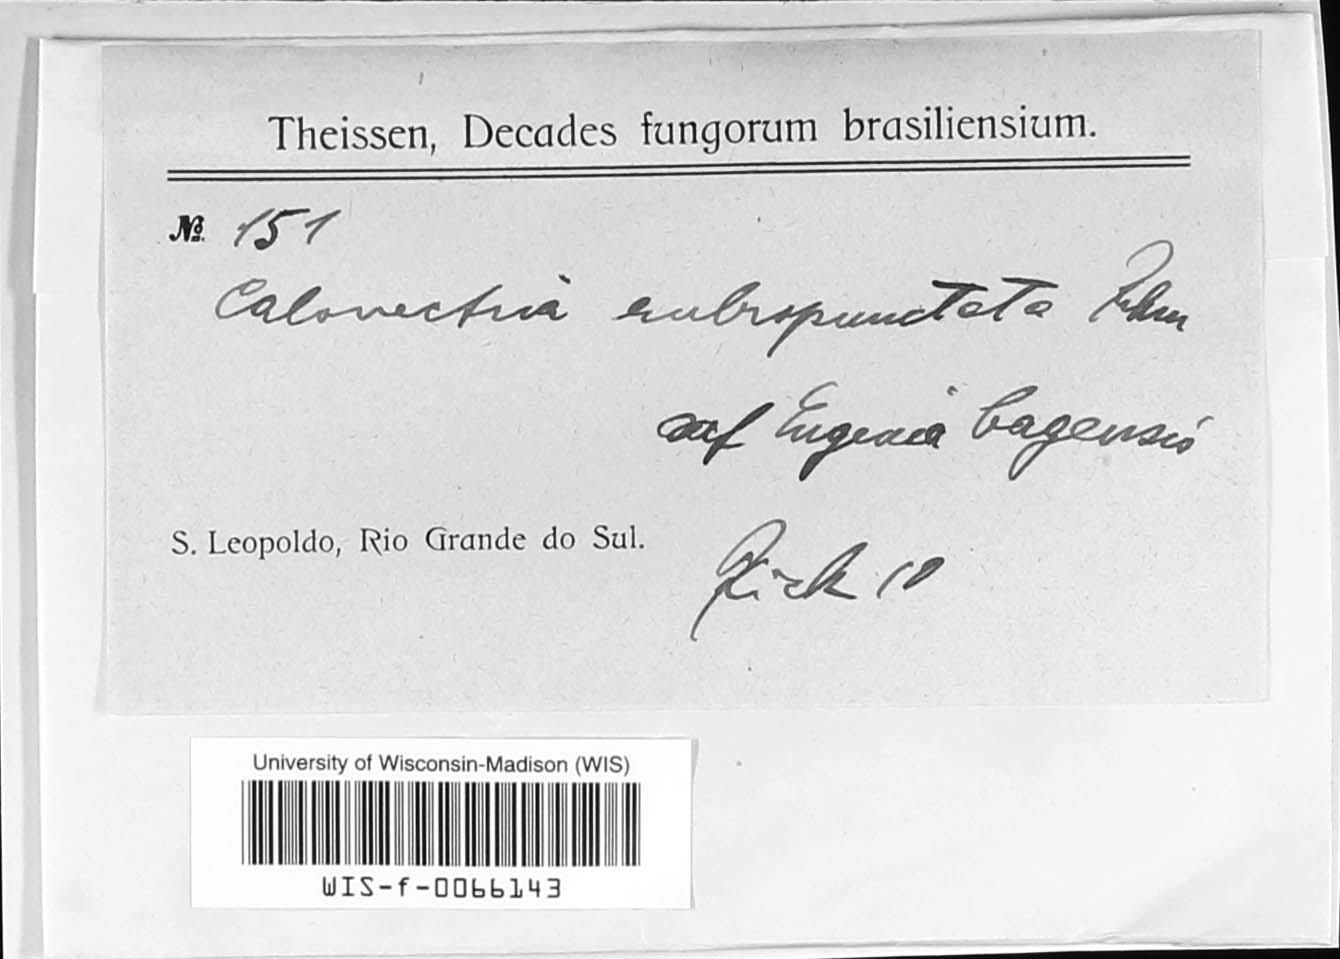 Theissen, Decades fungorum brasiliensium.
№ 151
Calonectria rubropunctata Rehm
auf Eugenia bagensis
S. Leopoldo, Rio Grande do Sul.
Rick 10
University of Wisconsin-Madison (WIS)
WIS-f-0066143